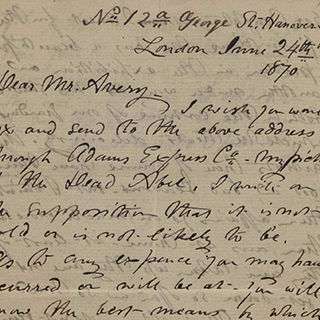 No 12a George St. Hanover
London June 24th
1870
Dear Mr. Avery.
I wish you wou
ox and send to the above address
hrough Adams Express Co. my pict
the Dead Abel, I write on
he supposition that it is not
old or is not likely to be.
As to any expence you may hav
curred or will be at- you will
now the best means by which